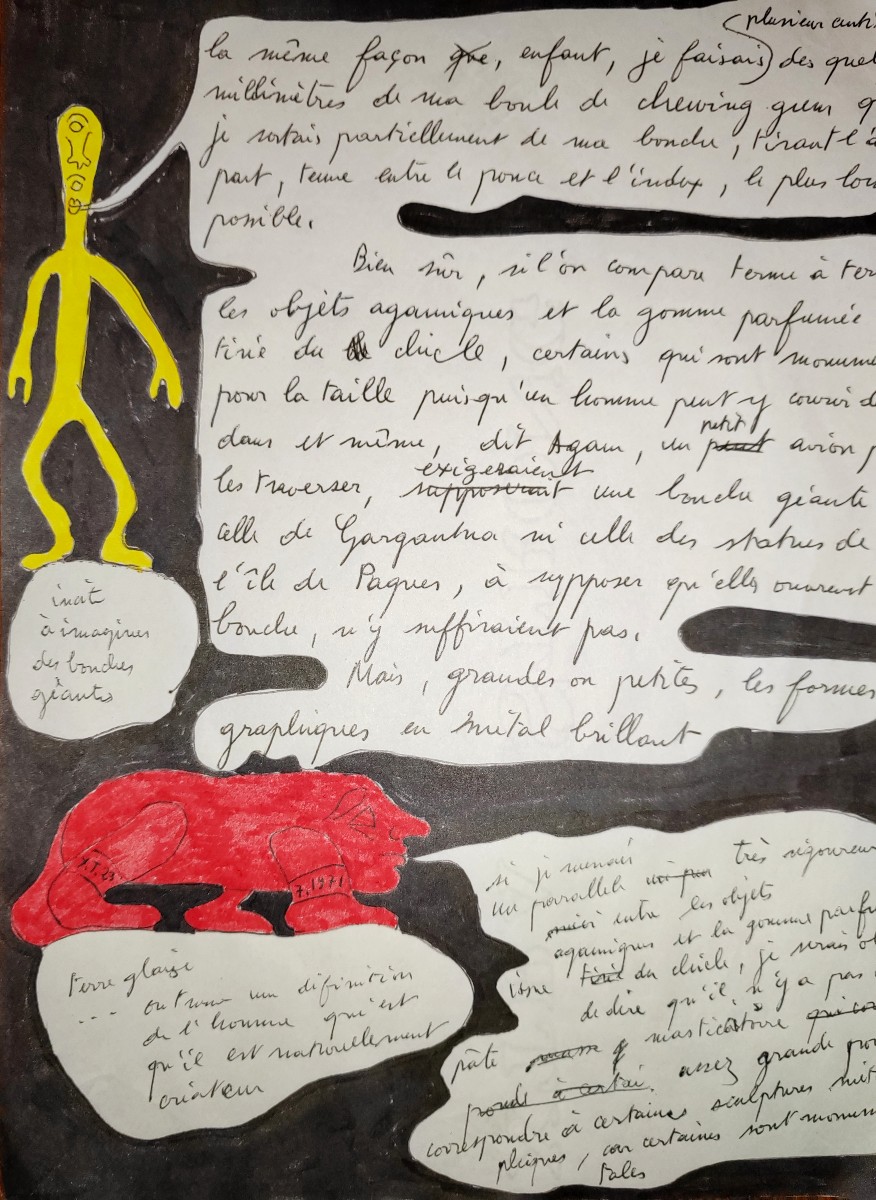 plusieur
la même façon que, enfant, je faisais des
millimètres de ma boule de chewing gum
je sortais partiellement de ma bouche, tirant l'
part, tenue entre le pouce et l'index, le plus
possible.
Bien sûr, si l'on compare terme à
les objets agamiques et la gomme parfumée
tirée du chicle, certains qui sont
pour la taille puisqu'un homme peut y courir
petit
dans et même, dit Agam, un peut avion
exigeraient
les traverser, supposerait une bouche géante
celle de Gargantua ni celle des statues de
l'île de Paques, à supposer qu'elles ouvrent
bouche, n'y suffiraient pas.
Mais, grandes ou petites, les formes
graphiques en métal brillant
à imaginer
des bouches
géantes
7.1971
terre glaise
... on trouve une définition
de l'homme qu'est
qu'il est naturellement
créateur
si je menais très
un parallèle
entre les objets
agamiques et la gomme
issue tirée du chicle, je serais
de dire qu'il n'y a pas
pâte masticatoire
assez grande
correspondre à certaines sculptures
phiques, car certaines sont
tales